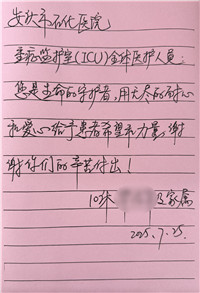 安庆市石化医院:
重症监护室(ICU)全体医护人员:
您是生命的守护者,用无尽的耐心
和爱心给予患者希望和力量,谢
谢你们的辛苦付出!
10床 及家属
2025.7.25.